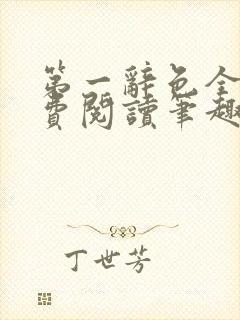 第一辭色全
費閱讀筆趣
丁世芳